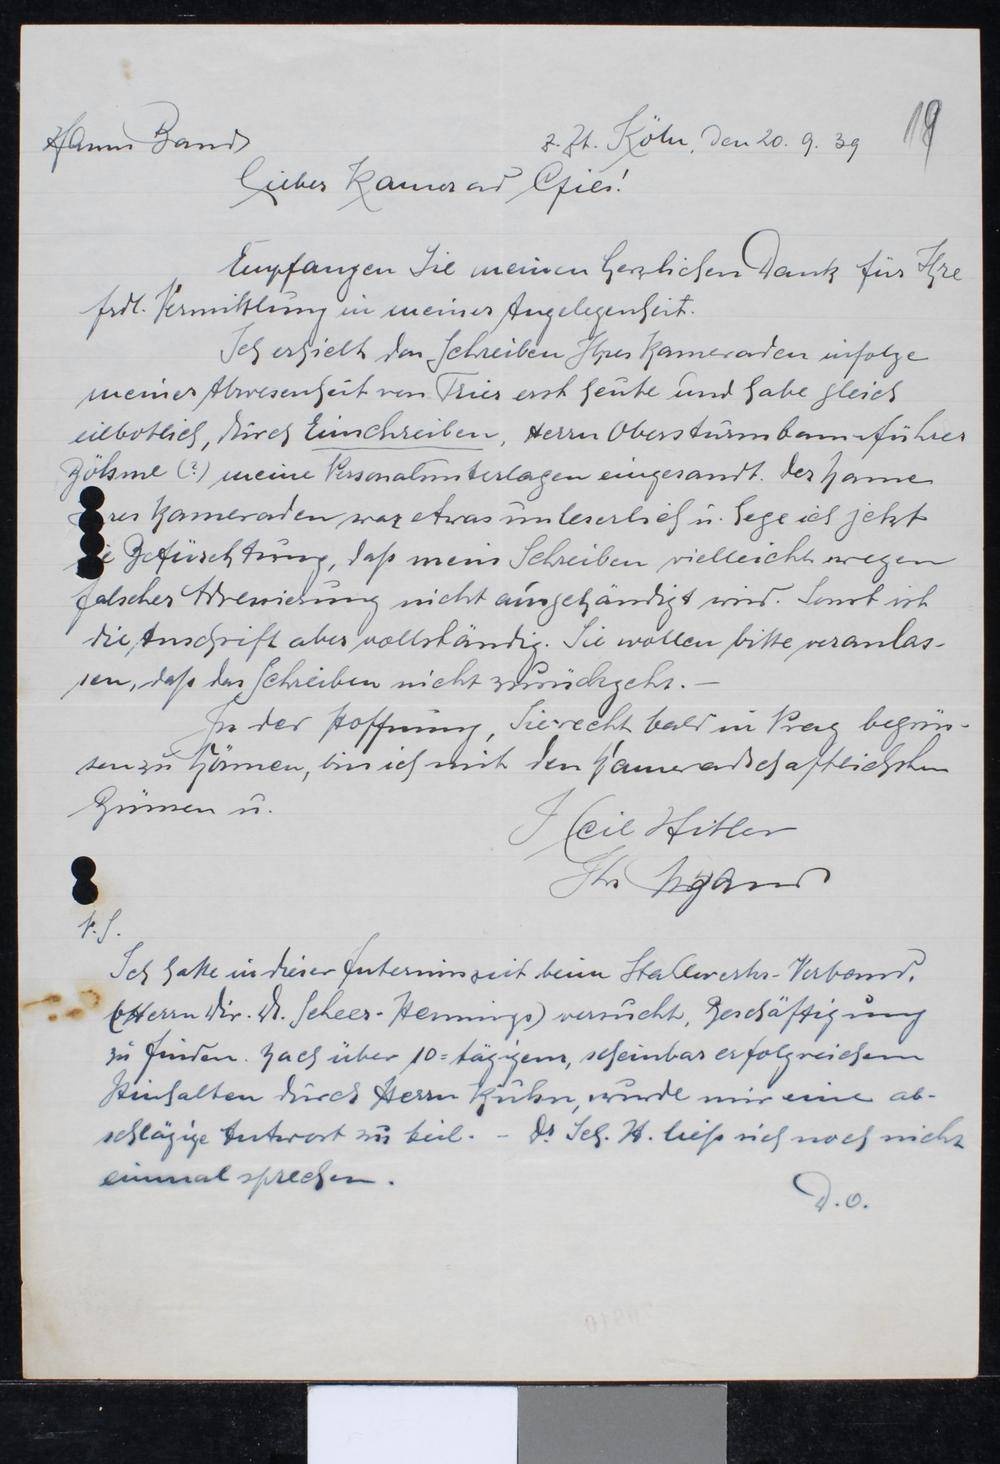 Hanns Band z. Zt. Köln, den 20. 9. 39 19
Lieber Kamerad
Empfangen Sie meinen herzlichen Dank für Ihre
frdl. Vermittlung in meiner Angelegenheit.
Ich erhielt das Schreiben Ihres Kameraden infolge
meiner Abwesenheit von Trier erst heute und habe gleich
eilbotlich, durch Einschreiben, Herrn Obersturmbannführer
Böhme (?) meine Personalunterlagen eingesandt. Der Name
res Kameraden war etwas unleserlich u. hege ich jetzt
ie Befürchtung, daß mein Schreiben vielleicht wegen
falscher Adressierung nicht ausgehändigt wird. Sonst ist
die Anschrift aber vollständig. Sie wollen bitte veranlas-
sen, daß das Schreiben nicht zurückgeht. —
In der Hoffnung, Sie recht bald in Prag begrüs-
sen zu können, bin ich mit den kameradschaftlichsten
Grüssen u.
Heil Hitler
Ihr
P.S.
Ich hatte in dieser Interimszeit beim Stahlwerks-Verband,
(Herrn Dir. Dr. Scheer-Hennings) versucht, Beschäftigung
zu finden. Nach über 10=tägigem, scheinbar erfolgreichem
Hinhalten durch Herrn Kühn, wurde mir eine ab-
schlägige Antwort zu teil. - Dr Sch. H. ließ sich noch nicht
einmal sprechen.
D.O.